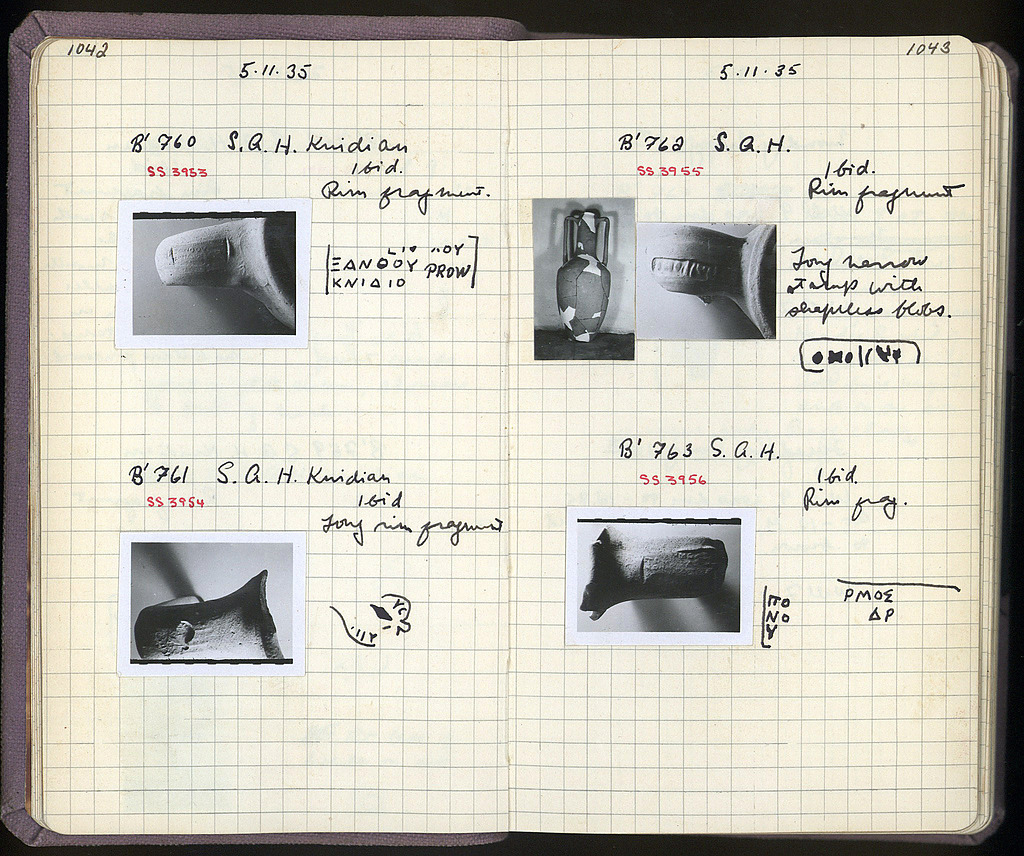 1042
5·11·35
B' 760 S.A.H. Knidian
SS 3953
Ibid.
Rim fragment.
ΞΑΝΘΟΥ PROW
ΚΝΙΔΙΟ
B' 761 S.A.H. Knidian
SS 3954
Ibid
Long rim fragment
1043
5·11·35
B' 762 S.A.H.
SS 3955
Ibid.
Rim fragment
Long narrow
stamp with
shapeless blobs.
B' 763 S.A.H.
SS 3956
Ibid.
Rim frag.
ΠΟ
ΝΟ
Υ
ΡΜΟΣ
ΔΡ